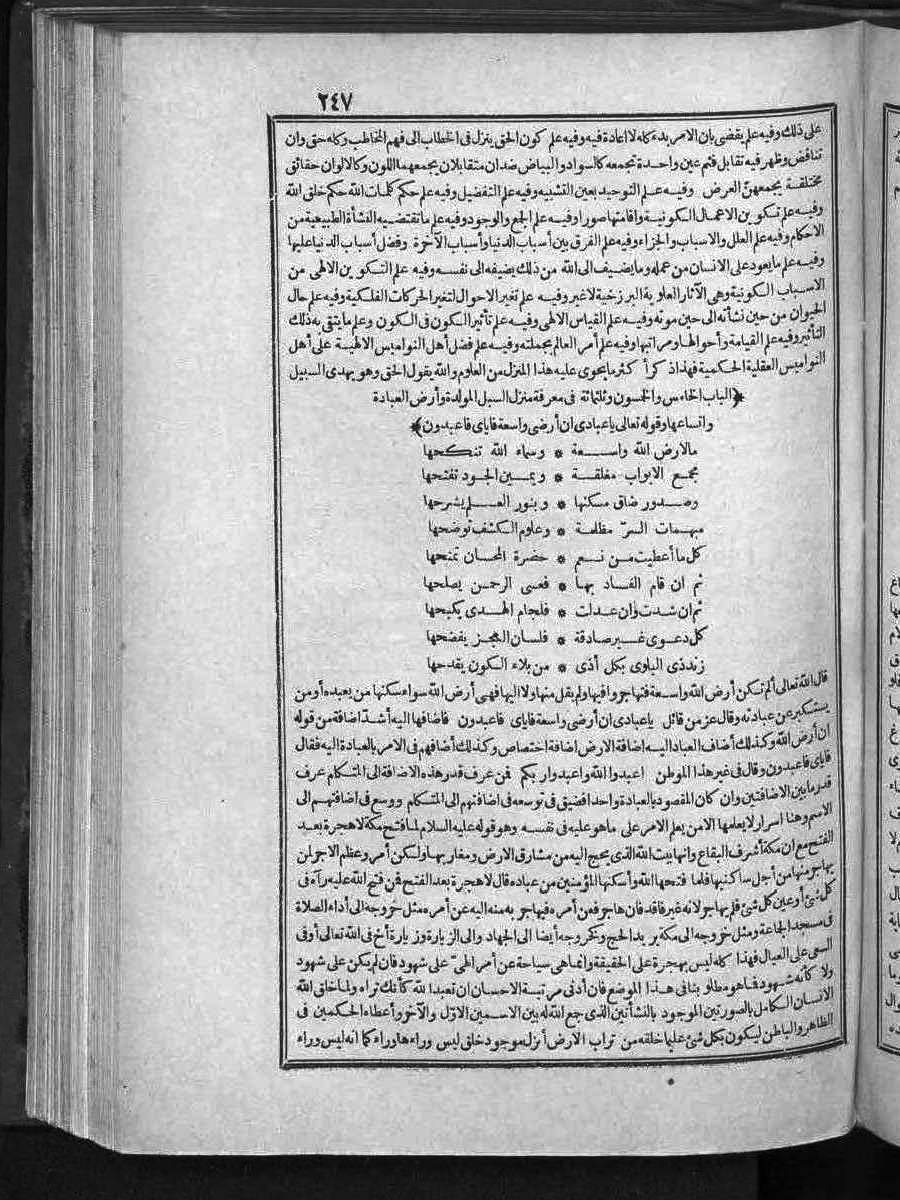 ٢٤٧
على ذلك وفيه علم يقضى بان الامر بدء كله لا اعادة فيه وفيه علم كون الحق ينزل فى الخطاب الى فهم المخاطب وكله حق وان
تناقض وظهر فيه تقابل فثم عين واحدة تجمعه كالسواد والبياض ضدان متقابلان يجمعهما اللون وكالالوان حقائق
مختلفة يجمعهنّ العرض وفيه علم التوحيد بعين التشبيه وفيه علم التفضيل وفيه علم حكم كلمات الله حكم خلق الله
وفيه علم تكوين الاعمال الكونية واقامتها صورا وفيه علم الجمع والوجود وفيه علم ما تقتضيه النشأة الطبيعية من
الاحكام وفيه علم العلل والاسباب والجزاء وفيه علم الفرق بين أسباب الدنيا وأسباب الآخرة وفضل أسباب الدنيا عليها
وفيه علم ما يعود على الانسان من عمله وما يضيف الى الله من ذلك يضيفه الى نفسه وفيه علم التكوين الالهى من
الاسباب الكونية وهى الآثار العلوية البرزخية لا غير وفيه علم تغير الاحوال لتغير الحركات الفلكية وفيه علم حال
الحيوان من حين نشأته الى حين موته وفيه علم القياس الالهى وفيه علم تأثير الكون فى الكون وعلم ما يتقى به ذلك
التأثير وفيه علم القيامة وأحوالها ومراتبها وفيه علم أمر العالم بجملته وفيه علم فضل أهل النواميس الالهية على أهل
النواميس العقلية الحكمية فهذا ذكر أكثر ما يحوى عليه هذا المنزل من العلوم والله يقول الحق وهو يهدى السبيل
﴿الباب الخامس والخمسون وثلثمائة فى معرفة منزل السبل المولدة وأرض العبادة
واتساعها وقوله تعالى ياعبادى ان أرضى واسعة فاياى فاعبدون﴾
مالارض الله واسعة * وسماء الله تنكحها
مجمع الابواب مغلقة * ويمين الجود تفتحها
وصدور ضاق مسكنها * وبنور العلم يشرحها
مبهمات السرّ مظلمة * وعلوم الكشف توضحها
كل ما أعطيت من نعم * حضرة المحسان تمنحها
ثم ان قام الفساد بها * فعسى الرحمن يصلحها
ثم ان شدت وان عدلت * فلجام الهدى يكبحها
كل دعوى غير صادقة * فلسان العجز يفضحها
زندذى البلوى بكل أذى * من بلاء الكون يقدحها
قال الله تعالى ألم تكن أرض الله واسعة فتهاجروا فيها ولم يقل منها ولا اليها فهى أرض الله سواء سكنها من يعبده أو من
يستكبر عن عبادته وقال عز من قائل ياعبادى ان أرضى واسعة فاياى فاعبدون فاضافها اليه أشدّ اضافة من قوله
ان أرض الله وكذلك أضاف العباد اليه اضافة الارض اضافة اختصاص وكذلك أضافهم فى الامر بالعبادة اليه فقال
فاياى فاعبدون وقال فى غير هذا الموطن اعبدوا الله واعبدوا ربكم فمن عرف قدر هذه الاضافة الى المتكلم عرف
قدر ما بين الاضافتين وان كان المقصود بالعبادة واحدا فضيق فى توسعه فى اضافتهم الى المتكلم ووسع فى اضافتهم الى
الاسم وهنا اسرار لا يعلمها الا من يعلم الامر على ماهو عليه فى نفسه وهو قوله عليه السلام لما فتح مكة لا هجرة بعد
الفتح مع ان مكة أشرف البقاع وانها بيت الله الذى يحج اليه من مشارق الارض ومغاربها ولكن أمر وعظم الاجر لمن
يهاجر منها من أجل ساكنيها فلما فتحها الله وأسكنها المؤمنين من عباده قال لا هجرة بعد الفتح فمن فتح الله عليه رآه فى
كل شئ أو عين كل شئ فلم يهاجر لانه غير فاقد فان هاجر فعن أمره فيهاجر به منه اليه عن أمره مثل خروجه الى أداء الصلاة
فى مسجد الجماعة ومثل خروجه الى مكة يريد الحج وكخروجه أيضا الى الجهاد والى الزيارة وزيارة أخ فى الله تعالى أو فى
السعى على العيال فهذا كله ليس بهجرة على الحقيقة وانما هى سياحة عن أمر الهىّ على شهود فان لم يكن على شهود
ولا كأنه شهود فما هو مطلوبنا فى هذا الموضع فان أدنى مرتبة الاحسان ان تعبد الله كأنك تراه ولما خلق الله
الانسان الكامل بالصورتين الموجود بالنشأتين الذى جمع الله له بين الاسمين الاوّل والآخر وأعطاه الحكمين فى
الظاهر والباطن ليكون بكل شئ عليما خلقه من تراب الارض أنزل موجود خلق ليس وراءها وراء كما انه ليس وراء